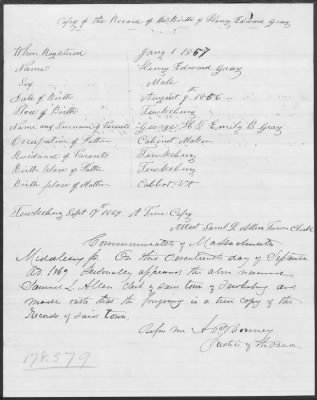 Copy of the Record of the Birth of Henry Edward Gray
When Registered Jany 1 1857
Name Henry Edward Gray
Sex Male
Date of Birth August 9th 1856
Place of Birth Tewksbury
Name and Surname of Parents George H & Emily B. Gray
Occupation of Father Cabinet Maker
Residence of Parents Tewksbury
Birth place of Father Tewksbury
Birth place of Mother Cabbot Vt
Tewksbury Sept 17th 1869. A True Copy
Attest Saml L Allen Town Clerk
Commonwealth of Massachusetts
Middlesex ss. On this Seventeenth day of September
AD 1869 Personally appeared the above named
Samuel L. Allen Clerk of said town of Tewksbury and
made oath that the foregoing is a true copy of the
Records of said Town.
Before me A. P. Bonney
Justice of the Peace
178.579